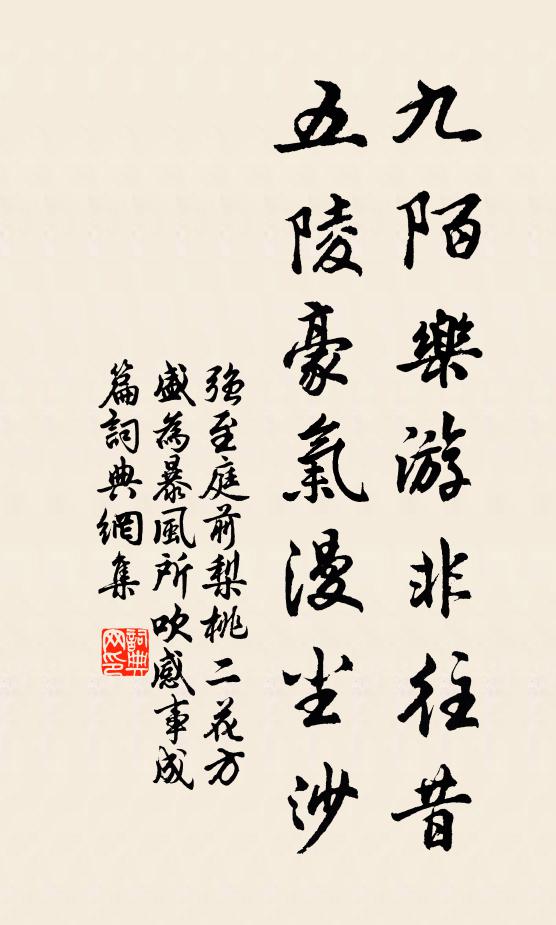 九陌樂游非往昔
五陵豪氣漫尘沙
强至庭前梨桃二花方
盛為暴風所吹感事成
篇詞典網集
詞典网印